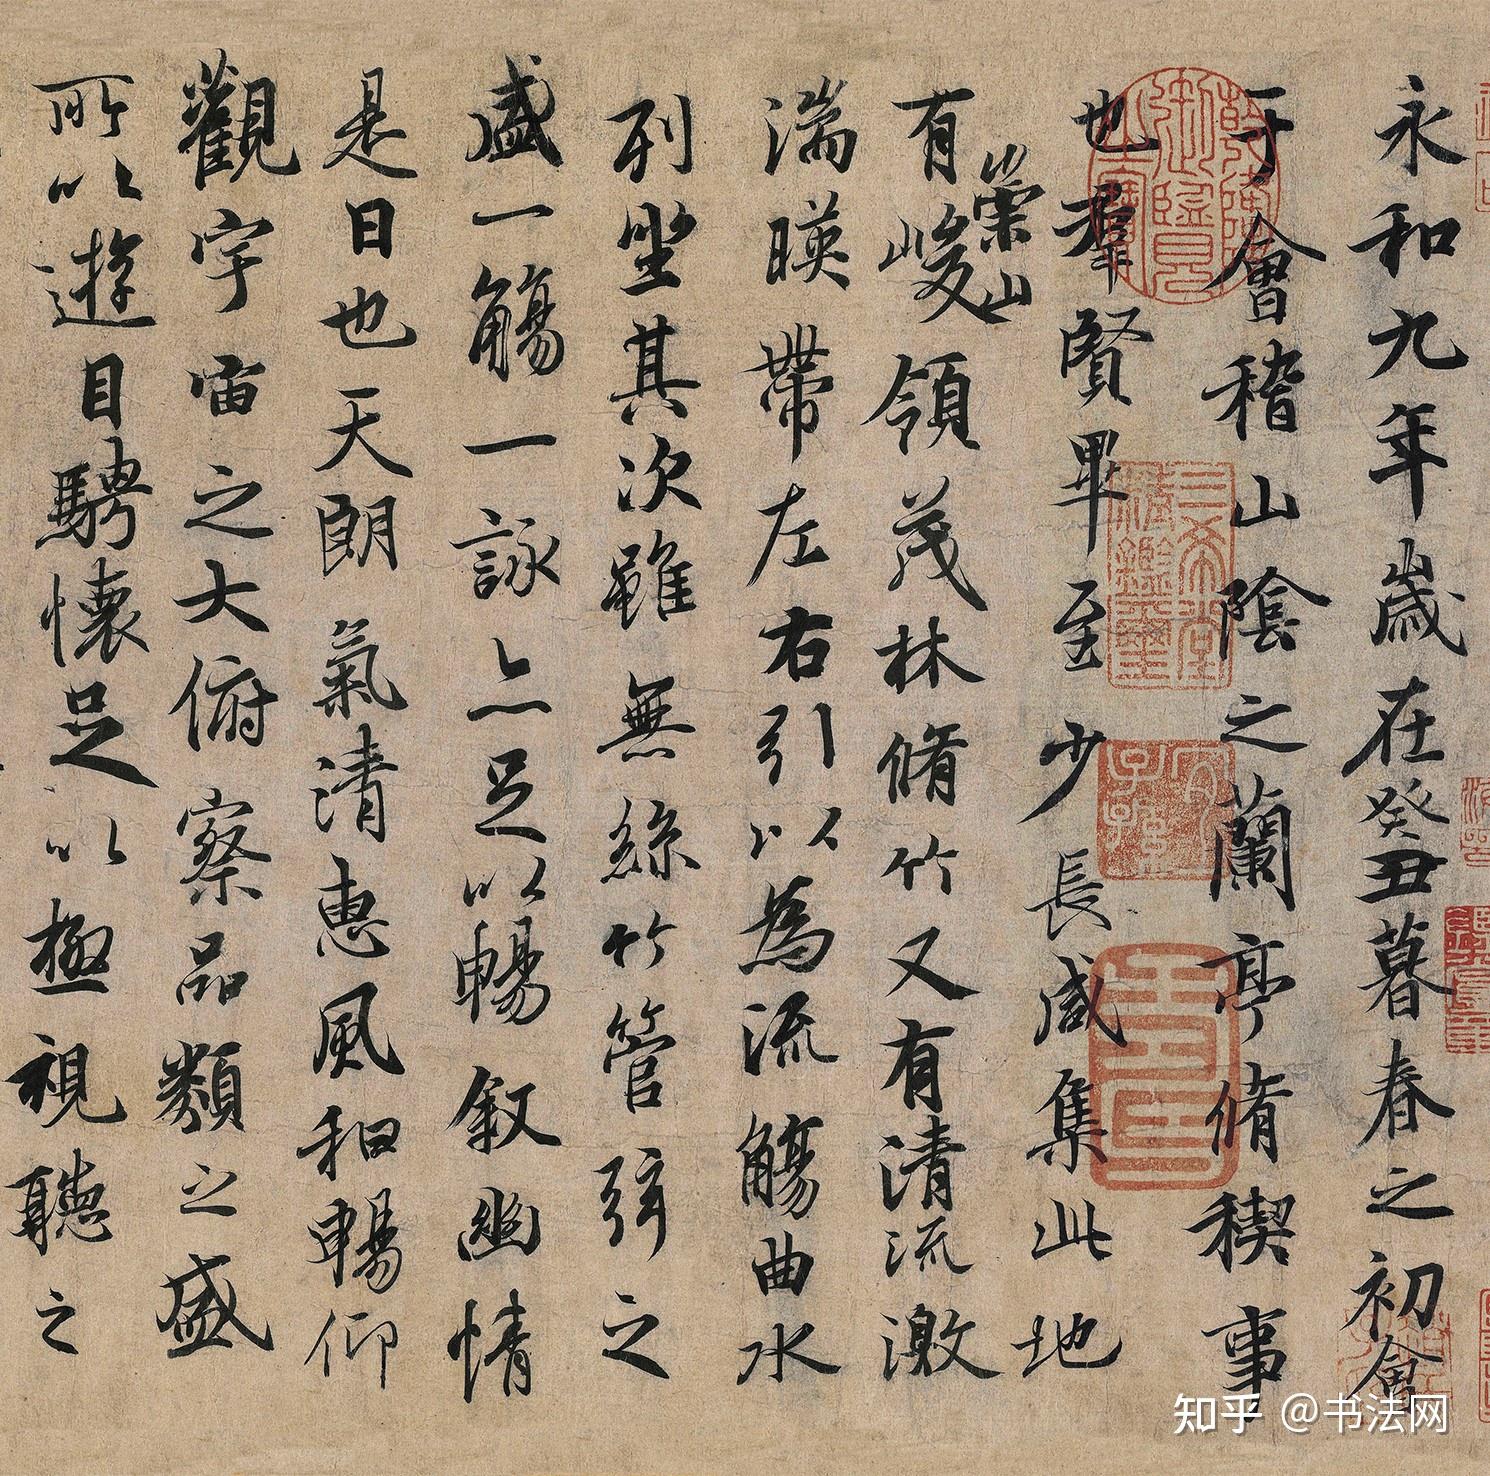 永和九年歲在癸丑暮春之初會
于會稽山陰之蘭亭脩稧事
也羣賢畢至少長咸集此地
有崇山峻領茂林脩竹又有清流激
湍暎帶左右引以為流觴曲水
列坐其次雖無絲竹管弦之
盛一觴一詠亦足以暢敘幽情
是日也天朗氣清惠風和暢仰
觀宇宙之大俯察品類之盛
所以遊目騁懷足以極視聽之
三希堂精鑑璽
宜子孫
知乎 @书法网